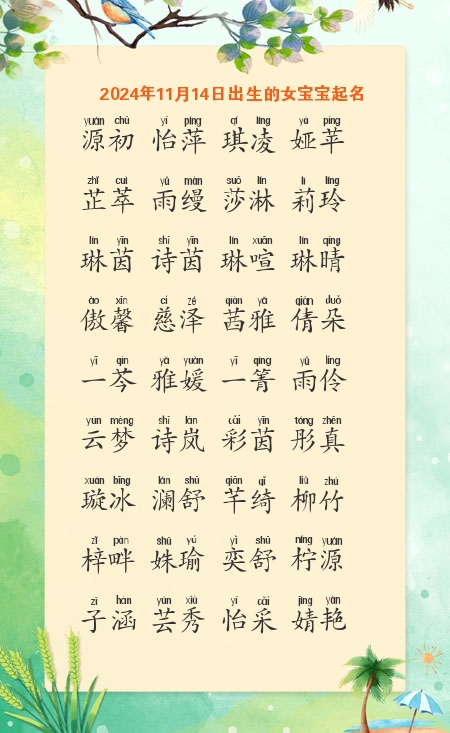 2024年11月14日出生的女宝宝起名
yuán chū yí píng qí líng yà píng
源初 怡萍 琪凌 娅苹
zhǐ cuì yǔ màn suō lín lì líng
芷萃 雨缦 莎淋 莉玲
lín yīn shī yīn lín xuān lín qíng
琳茵 诗茵 琳喧 琳晴
ào xīn cí zé qiàn yǎ qiàn duǒ
傲馨 慈泽 茜雅 倩朵
yī qín yǎ yuàn yī qìng yǔ líng
一芩 雅媛 一箐 雨伶
yún mèng shī lán cǎi yīn tóng zhēn
云梦 诗岚 彩茵 彤真
xuán bīng lán shū qiān qǐ liǔ zhú
璇冰 澜舒 芊绮 柳竹
zǐ pàn shū yú yì shū níng yuán
梓畔 姝瑜 奕舒 柠源
zǐ hán yún xiù yí cǎi jìng yàn
子涵 芸秀 怡采 婧艳